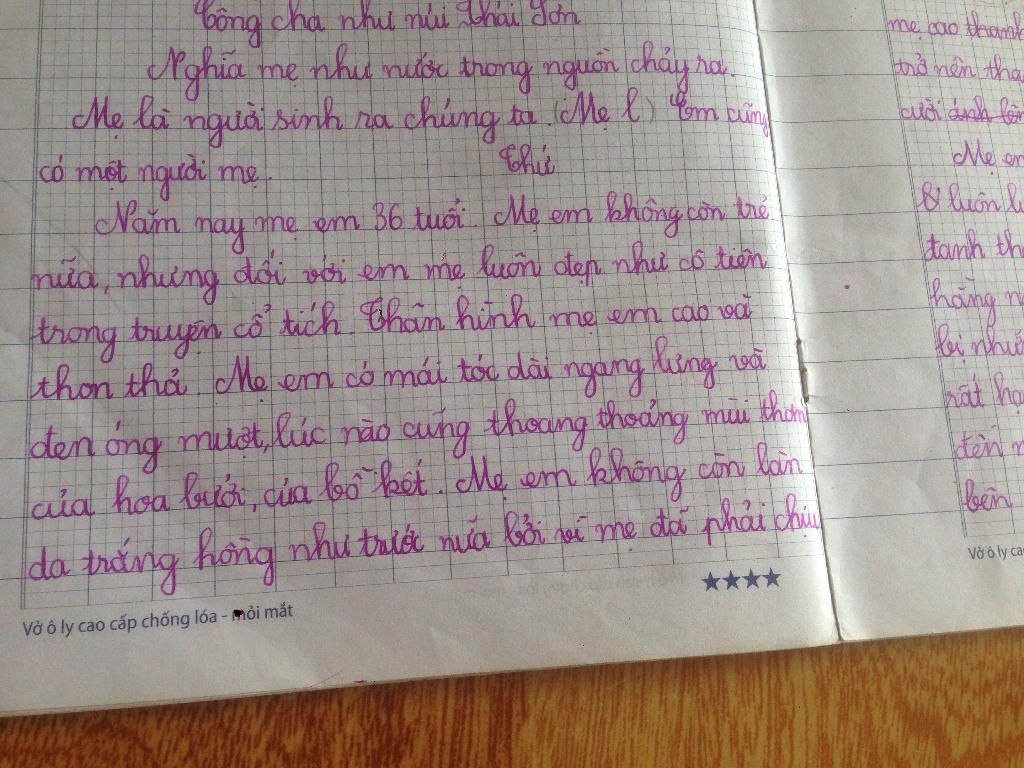 Công cha như núi Thái Sơn
Nghĩa mẹ như nước trong nguồn chảy ra.
Mẹ là người sinh ra chúng ta. (Mẹ l) Em cũng
có một người mẹ. Thứ
Năm nay mẹ em 36 tuổi. Mẹ em không còn trẻ
nữa, nhưng đối với em mẹ luôn đẹp như cô tiên
trong truyện cổ tích. Thân hình mẹ em cao và
thon thả. Mẹ em có mái tóc dài ngang lưng và
đen óng mượt, lúc nào cũng thoang thoảng mùi thơm
của hoa bưởi, của bồ kết. Mẹ em không còn làn
da trắng hồng như trước nữa bởi vì mẹ đã phải chịu
Vở ô ly cao cấp chống lóa - mỏi mắt
mẹ cao thanh
trở nên tha
cười ánh
Mẹ em
& luôn
tanh th
hằng n
bị nhứ
rất hạ
đến n
bên
Vở ô ly ca